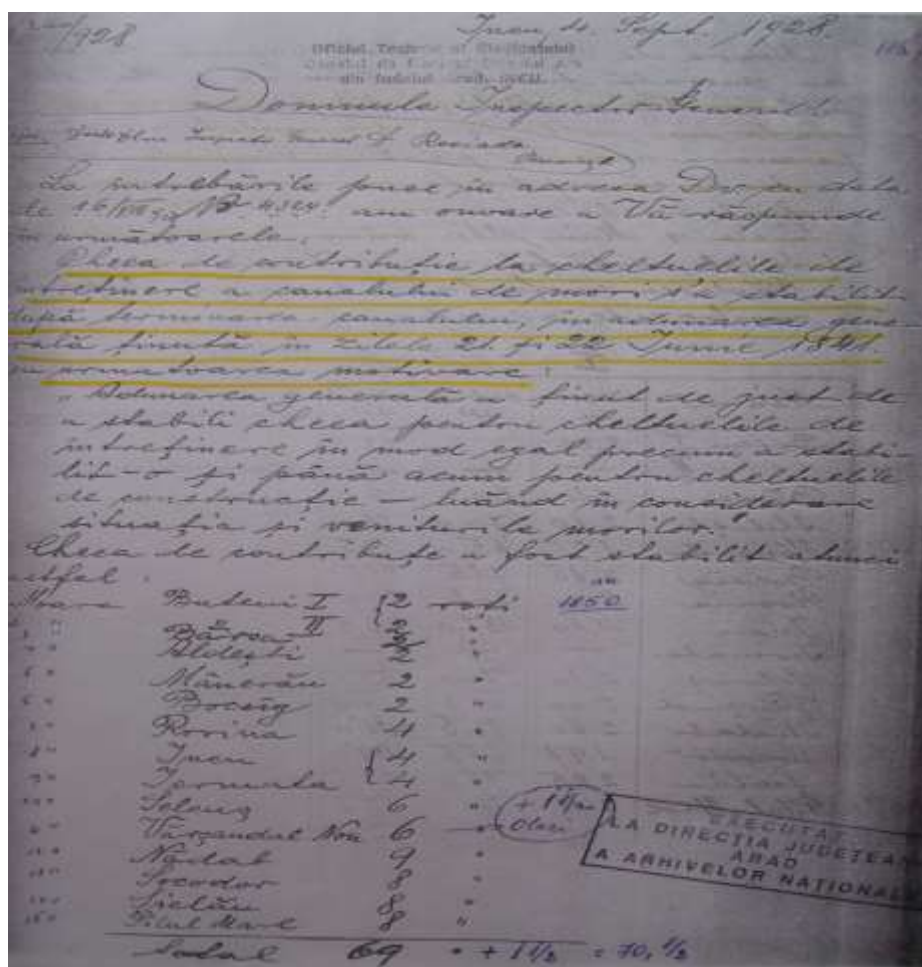 /928 Ineu, 11. Sept. 1928.
Oficiul Tehnic al
din judetul Arad, INEU.
Domnule Inspector General!
Inspector General
La întrebările puse în adresa Dv. cu data
de 16/VIII 4324. am onoare a Vă răspunde
în următoarele.
Cheea de contribuție la cheltuelile de
întreținere a canalului de mori s'a stabilit
după terminarea canalului, în adunarea gene-
rală ținută în zilele 21. și 22 Iunie 1841.
cu următoarea motivare:
„Adunarea generală a ținut de just de
a stabili cheea pentru cheltuelile de
întreținere în mod egal precum a stabi-
lit-o și până acum pentru cheltuelile
de construcție – luând în considerare
situația și veniturile morilor."
Cheea de contribuție a fost stabilit atunci
astfel.
Moara Buteni I 2 roți 1850
" II 2 "
Bârsa "
Aldești 2 "
Mânerău 2 "
Bocsig 2 "
Rovina 4 "
Ineu 4 "
Iermata 4 "
Seleuș 6 "
Vârșandul Nou 6 " + 1 1/2
Nădab 9 "
Socodor 8 "
8 "
Pilul Mare 8 "
Total 69 " + 1 1/2 = 70, 1/2
EXECUTAT
LA DIRECȚIA JUDEȚEANĂ
ARAD
A ARHIVELOR NAȚIONALE